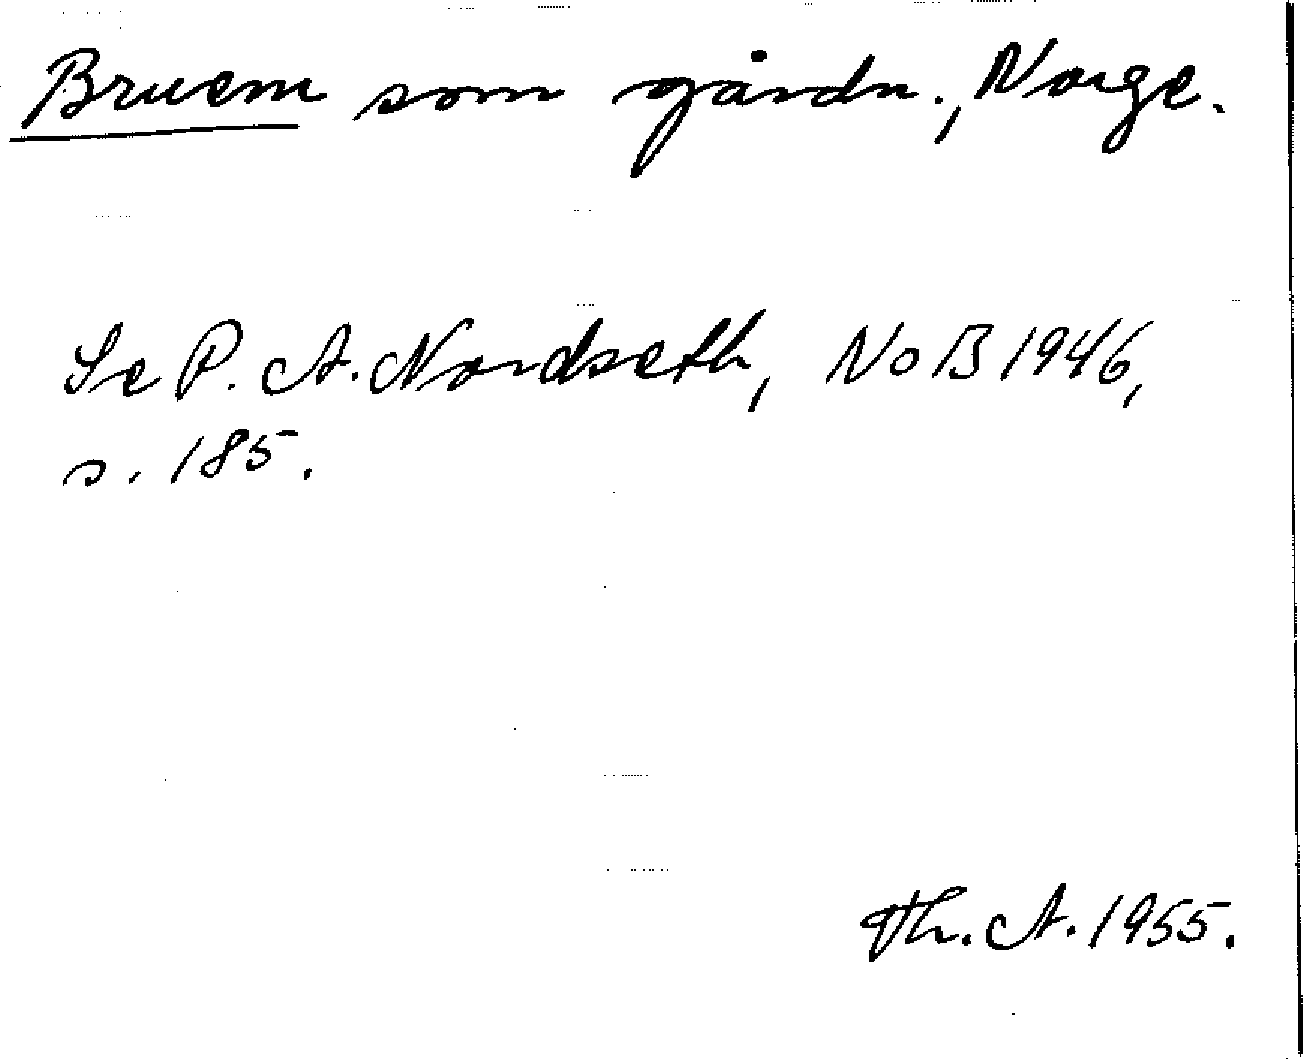 Bruem som gårdn., Norge.
Se P. A. Nordseth, NoB 1946,
s. 185.
Th. A. 1955.